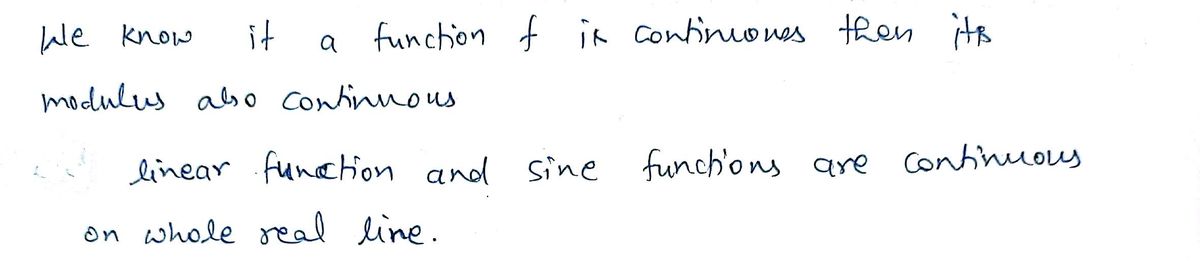 We know if a function f is continuous then its
modulus also continuous
linear function and sine functions are continuous
on whole real line.